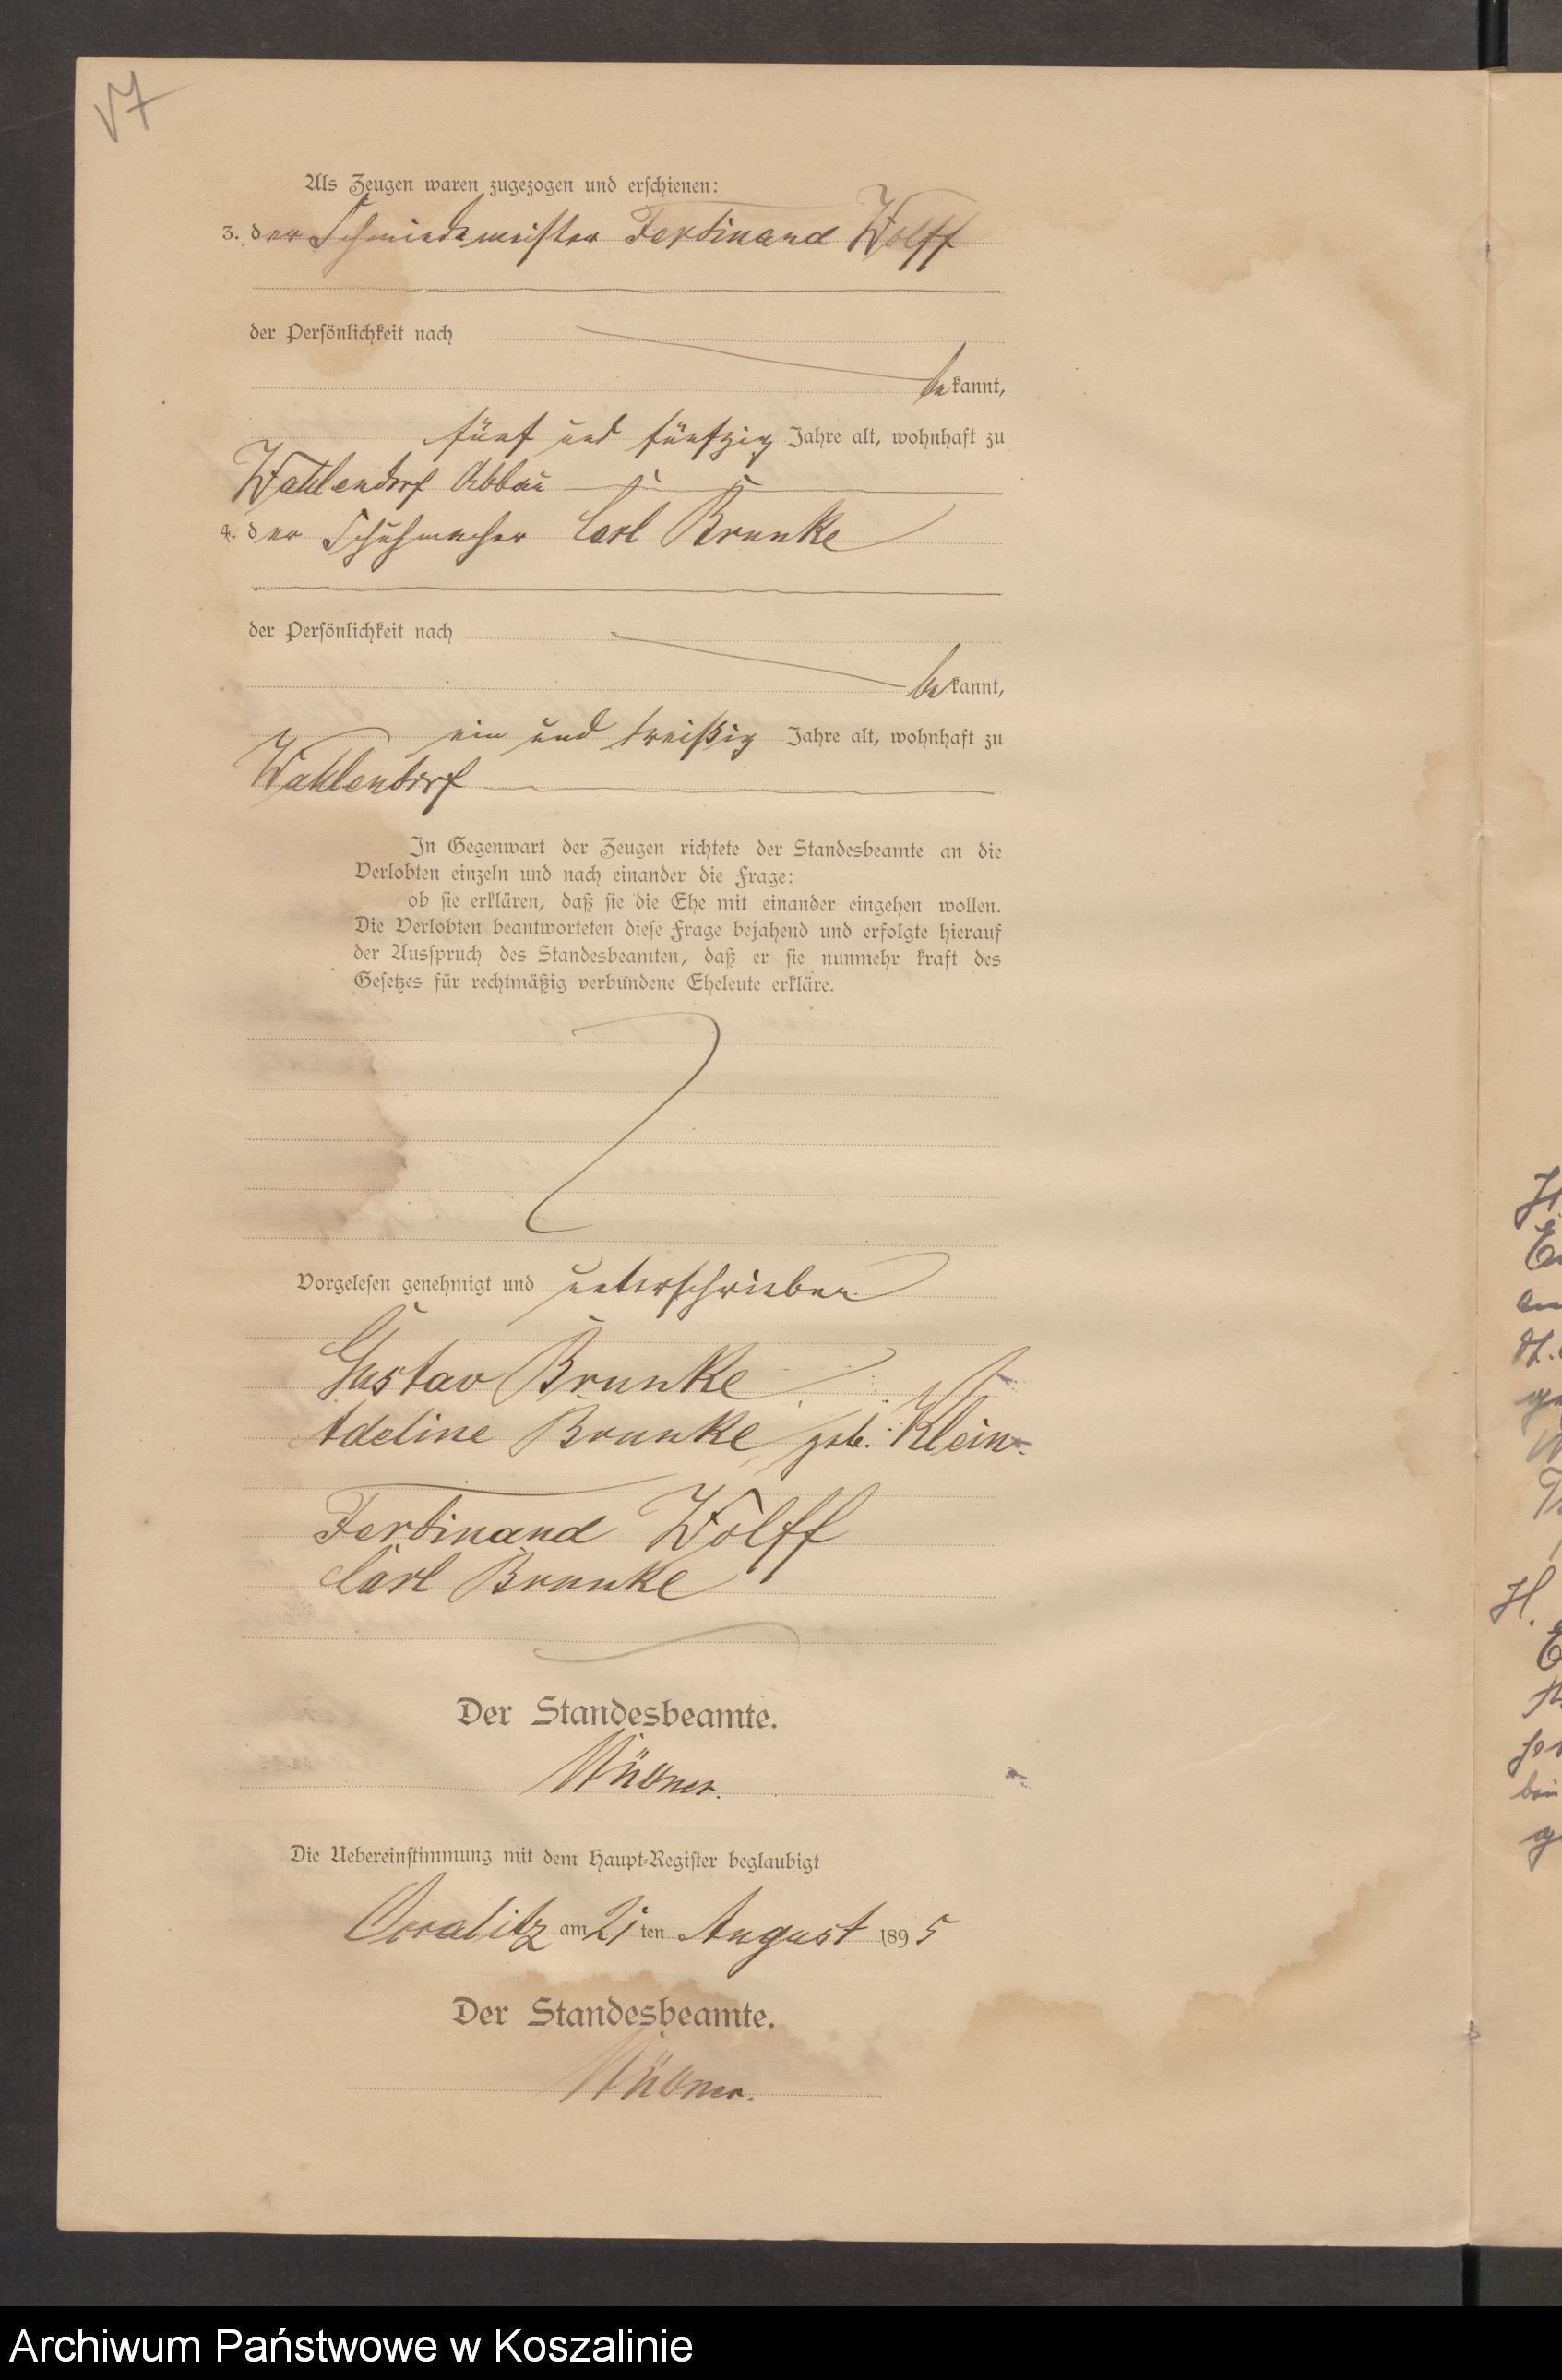 V7
Als Zeugen waren zugezogen und erschienen:
3. der Schmiedemeister Ferdinand Wolff
der Persönlichkeit nach
bekannt,
fünf und fünfzig Jahre alt, wohnhaft zu
Wahlendorf Abbau
4. der Schuhmacher Carl Brunke
der Persönlichkeit nach
bekannt,
ein und dreißig Jahre alt, wohnhaft zu
Wahlendorf
In Gegenwart der Zeugen richtete der Standesbeamte an die
Verlobten einzeln und nach einander die Frage:
ob sie erklären, daß sie die Ehe mit einander eingehen wollen.
Die Verlobten beantworteten diese Frage bejahend und erfolgte hierauf
der Ausspruch des Standesbeamten, daß er sie nunmehr kraft des
Gesetzes für rechtmäßig verbundene Eheleute erkläre.
Vorgelesen genehmigt und unterschrieben
Gustav Brunke
Adeline Brunke geb. Klein.
Ferdinand Wolff
Carl Brunke
Der Standesbeamte.
Die Uebereinstimmung mit dem Haupt-Register beglaubigt
am 21 ten August 1895
Der Standesbeamte.
Archiwum Państwowe w Koszalinie